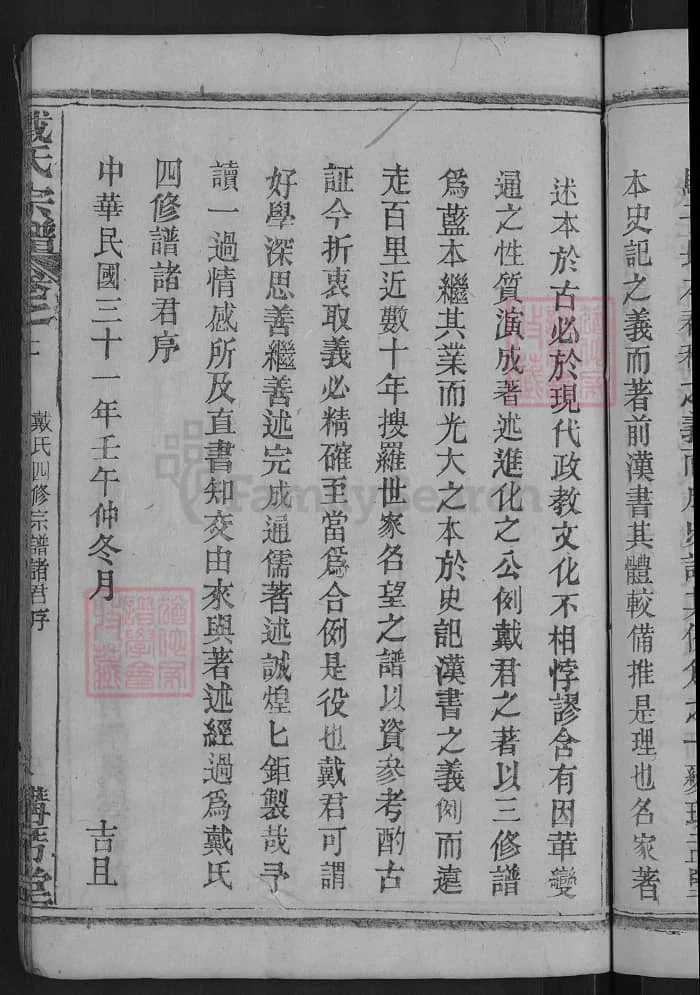 本史記之義而著前漢書其體較備推是理也名家著
述本於古必於現代政教文化不相悖謬含有因革變
通之性質演成著述進化之公例戴君之著以三修譜
為藍本繼其業而光大之本於史記漢書之義例而遠
走百里近數十年搜羅世家名望之譜以資參考酌古
証今折衷取義必精確至當為合例是役也戴君可謂
好學深思善繼善述完成通儒著述誠煌匕鉅製哉予
讀一過情感所及直書知交由來與著述經過為戴氏
四修譜諸君序
中華民國三十一年壬午仲冬月 吉旦
戴氏宗譜
戴氏四修宗譜諸君序
FamilySearch